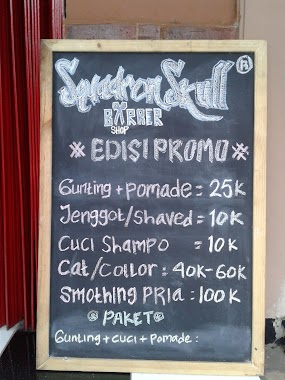 Squdron Skull ®
BARBER
SHOP
* EDISI PROMO *
Gunting + pomade = 25K
Jenggot/Shaved = 10K
Cuci Shampo = 10K
Cat/Collor = 40K-60K
Smothing PRia = 100K
@ PAKET @
Gunting + cuci + Pomade :